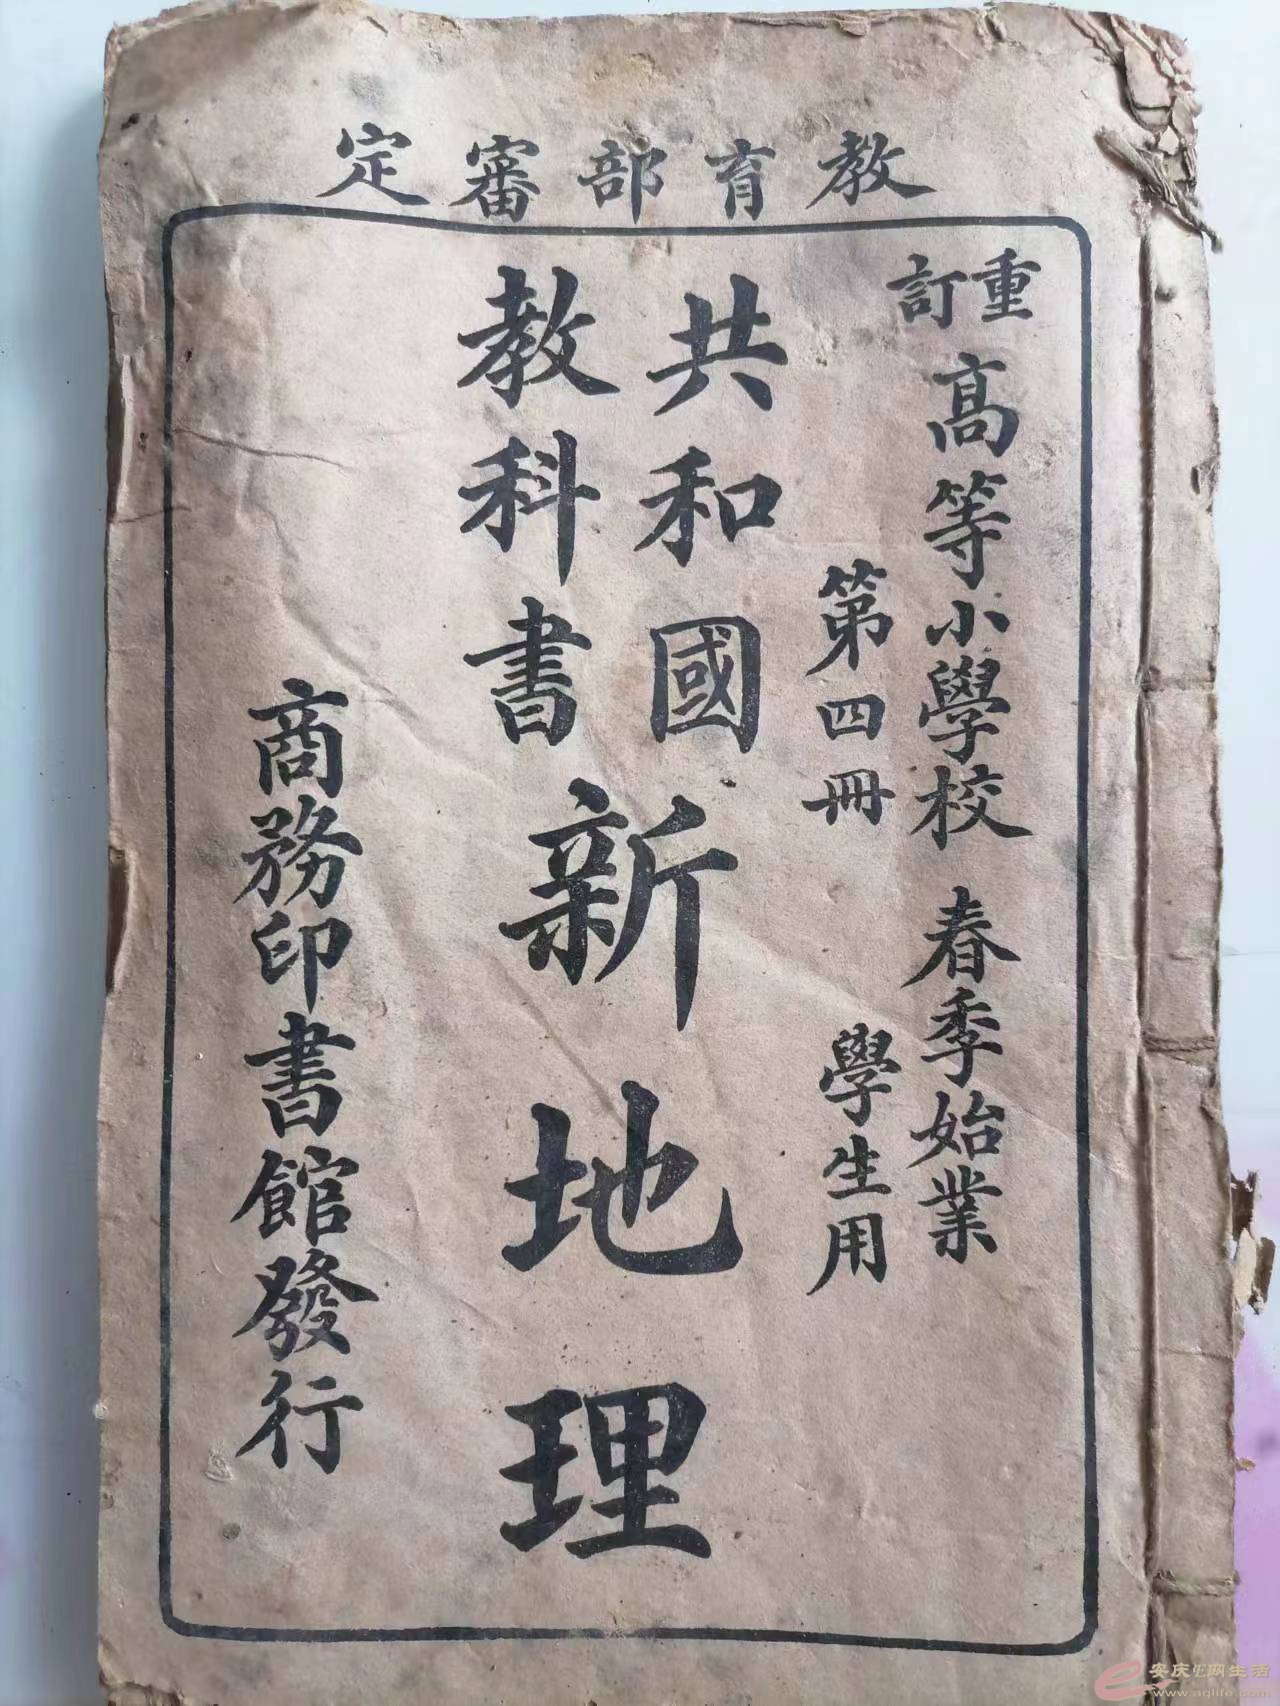 教育部審定
重訂高等小學校 春季始業
第四冊 學生用
共和國
教科書
新地理
商務印書館發行
安庆E网生活
www.aqlife.com